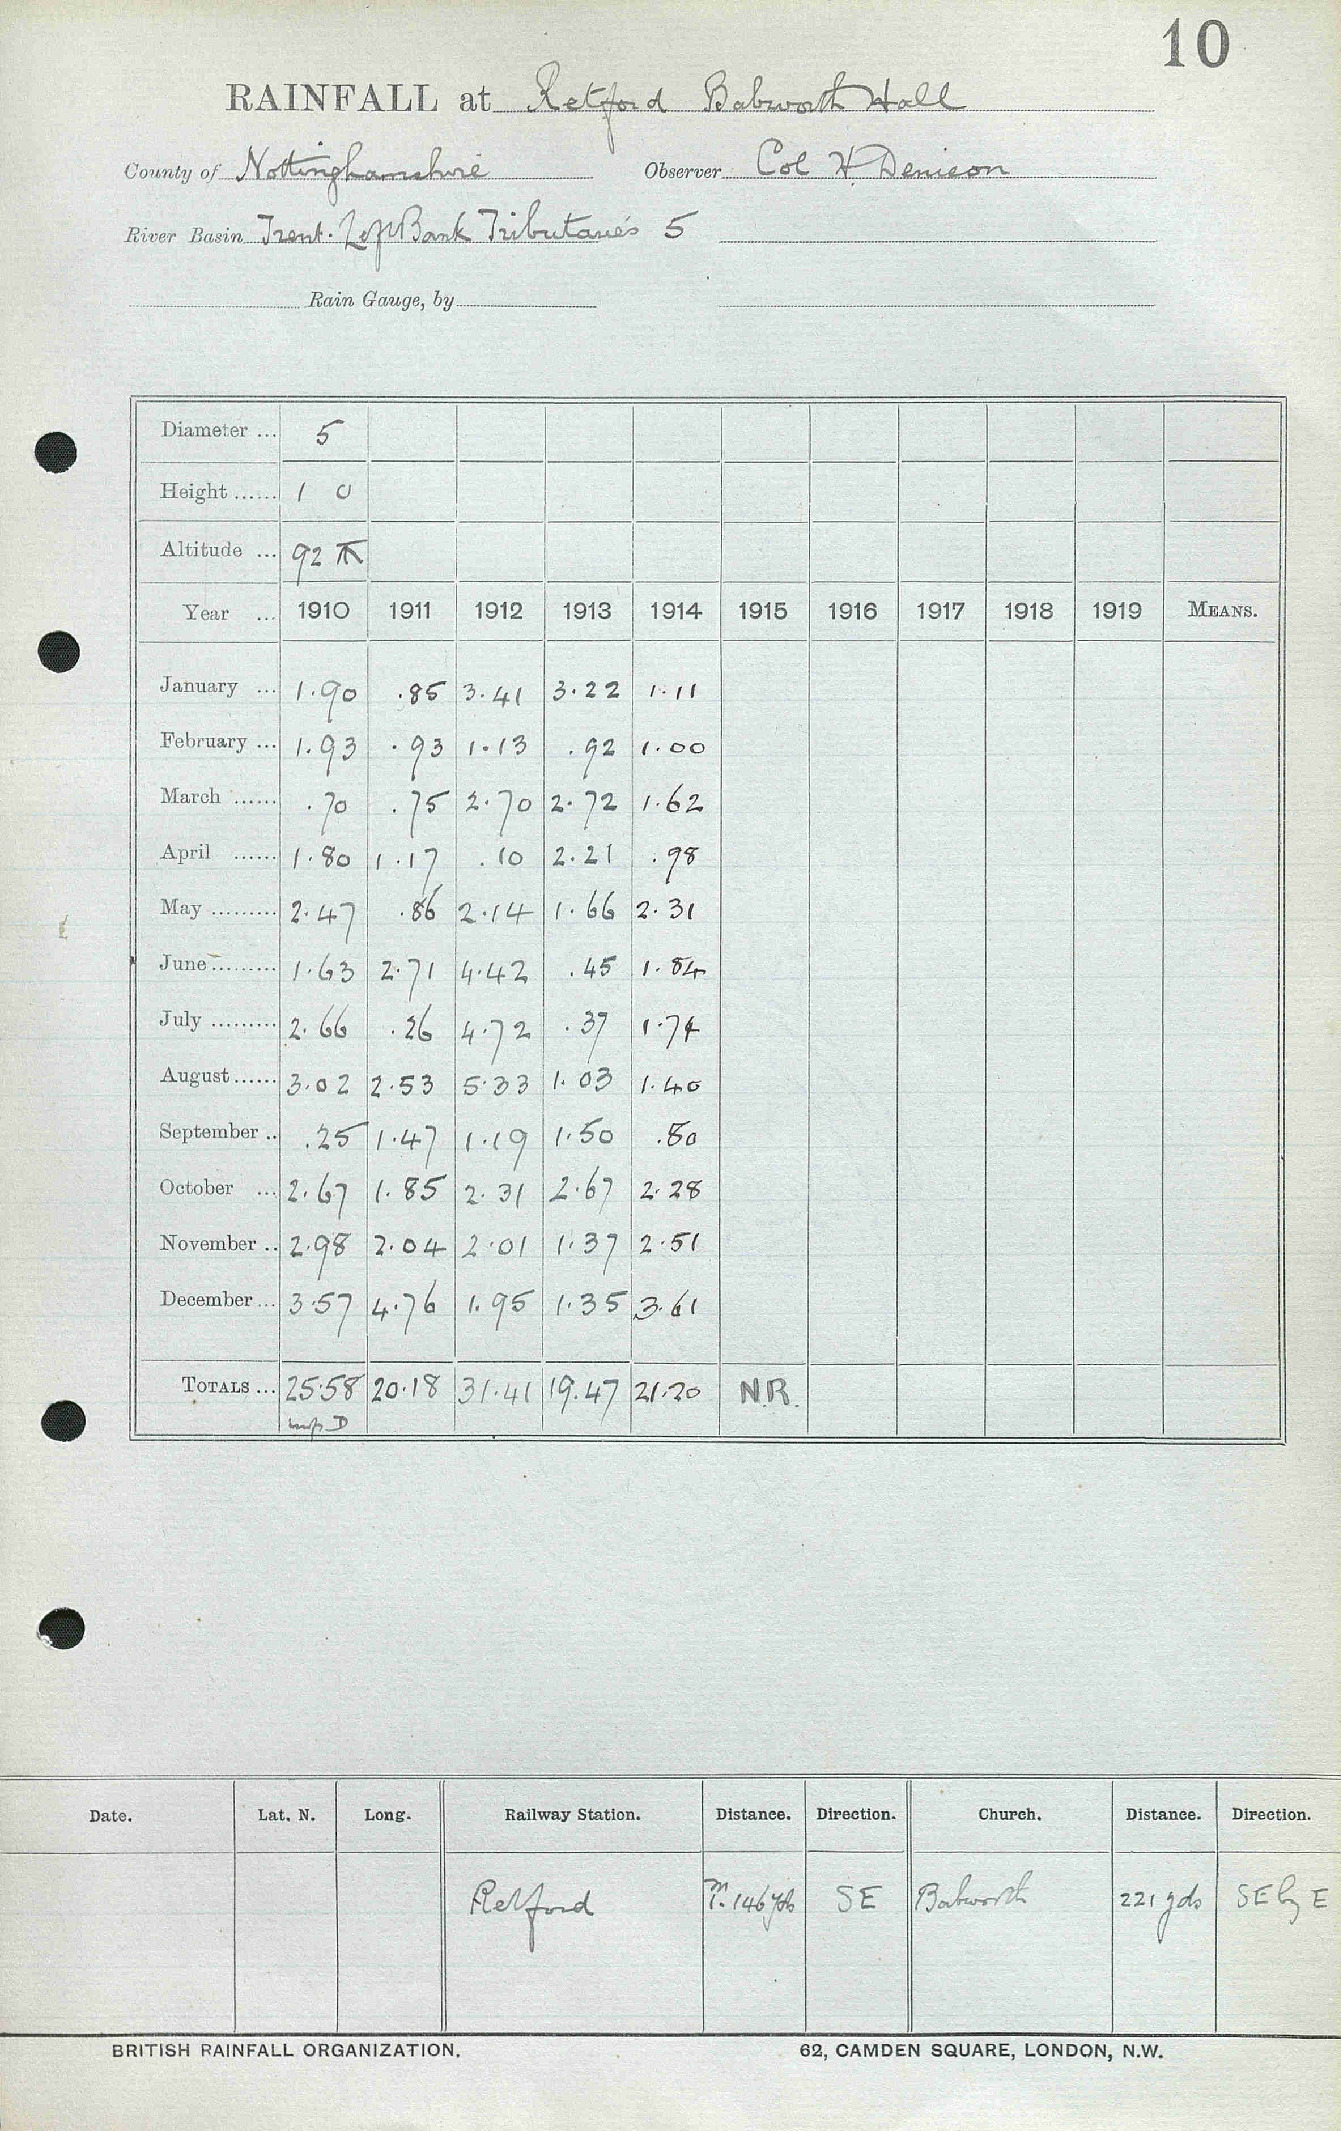 10
RAINFALL at Retford Babworth Hall
County of Nottinghamshire Observer Col H. Denison
River Basin Trent. Left Bank Tributaries 5
Rain Gauge, by
Diameter ... 5
Height ...... 1 0
Altitude ... 92
Year ... 1910 1911 1912 1913 1914 1915 1916 1917 1918 1919 MEANS.
January ... 1.90 .85 3.41 3.22 1.11
February ... 1.93 .93 1.13 .92 1.00
March ...... .70 .75 2.70 2.72 1.62
April ...... 1.80 1.17 .10 2.21 .98
May ......... 2.47 .86 2.14 1.66 2.31
June ......... 1.63 2.71 4.42 .45 1.84
July ......... 2.66 .26 4.72 .37 1.74
August ...... 3.02 2.53 5.33 1.03 1.40
September .. .25 1.47 1.19 1.50 .80
October ... 2.67 1.85 2.31 2.67 2.28
November .. 2.98 2.04 2.01 1.37 2.51
December ... 3.57 4.76 1.95 1.35 3.61
TOTALS ... 25.58 20.18 31.41 19.47 21.20 N.R.
D
Date. Lat. N. Long. Railway Station. Distance. Direction. Church. Distance. Direction.
Retford 146 yds SE Babworth 221 yds SE by E
BRITISH RAINFALL ORGANIZATION. 62, CAMDEN SQUARE, LONDON, N.W.